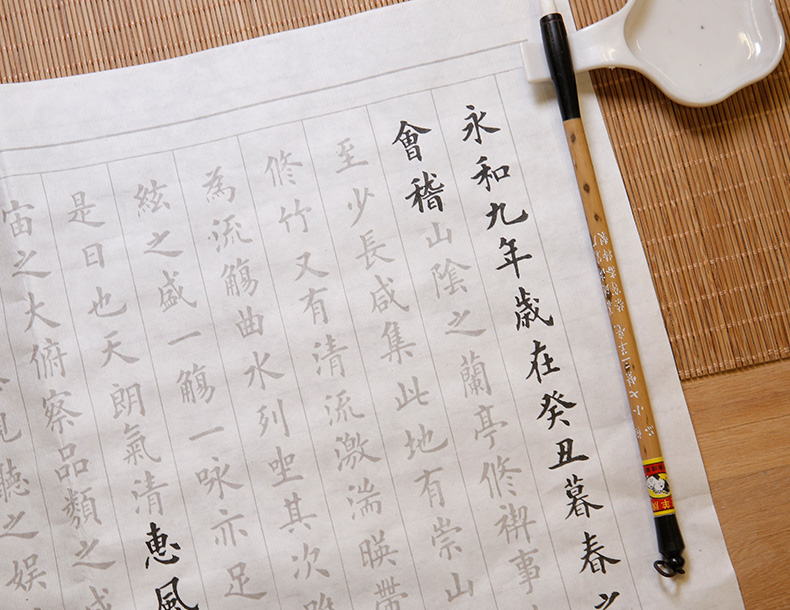 永和九年歲在癸丑暮春之
會稽山陰之蘭亭修禊事
至少長咸集此地有崇山
修竹又有清流激湍暎帶
為流觴曲水列坐其次
絃之盛一觴一咏亦足
是日也天朗氣清惠風
宙之大俯察品類之盛
聽之娛